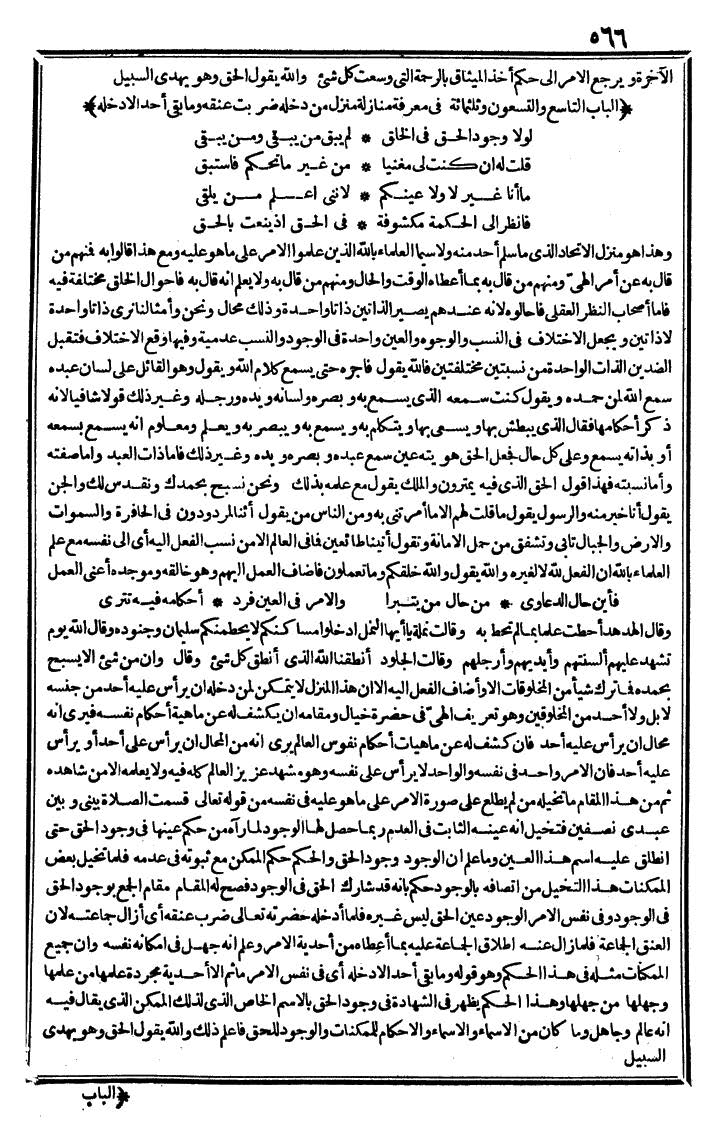 ٥٦٦
الآخرة ويرجع الامر الى حكم أخذ الميثاق بالرحمة التى وسعت كل شئ والله يقول الحق وهو يهدى السبيل
﴿الباب التاسع والتسعون وثلثمائة فى معرفة منازلة منزل من دخله ضربت عنقه وما بقى أحد الا دخله﴾
لولا وجود الحق فى الخلق * لم يبق من يبقى ومن يبقى
قلت له ان كنت لى مغنيا * من غير ما تحكم فاستبق
ما أنا غير لا ولا عينكم * لاننى اعلم من يلقى
فانظر الى الحكمة مكشوفة * فى الحق اذ ينعت بالحق
وهذا هو منزل الاتحاد الذى ما سلم أحد منه ولا سيما العلماء بالله الذين علموا الامر على ما هو عليه ومع هذا قالوا به فنهم من
قال به عن أمر الهىّ ومنهم من قال به بما أعطاه الوقت والحال ومنهم من قال به ولا يعلم انه قال به فاحوال الخلق مختلفة فيه
فاما أصحاب النظر العقلى فاحالوه لانه عندهم يصير الذاتين ذاتا واحدة وذلك محال ونحن وأمثالنا نرى ذاتا واحدة
لا ذاتين ويجعل الاختلاف فى النسب والوجوه والعين واحدة فى الوجود والنسب عدمية وفيها وقع الاختلاف فتقبل
الضدين الذات الواحدة من نسبتين مختلفتين فالله يقول فاجره حتى يسمع كلام الله ويقول وهو القائل على لسان عبده
سمع الله لمن حمده ويقول كنت سمعه الذى يسمع به وبصره ولسانه ويده ورجله وغير ذلك قولا شافيا لانه
ذكر أحكامها فقال الذى يبطش بها ويسعى بها ويتكلم به ويسمع به ويبصر به ويعلم ومعلوم انه يسمع بسمعه
أو بذاته يسمع وعلى كل حال فجعل الحق هويته عين سمع عبده وبصره ويده وغير ذلك فاما ذات العبد واما صفته
وأما نسبته فهذا قول الحق الذى فيه يمترون والملك يقول مع علمه بذلك ونحن نسبح بحمدك ونقدس لك والجن
يقول أنا خير منه والرسول يقول ما قلت لهم الا ما أمرتنى به ومن الناس من يقول أئنا لمردودون فى الحافرة والسموات
والارض والجبال تابى وتشفق من حمل الامانة وتقول أتينا طائعين فما فى العالم الا من نسب الفعل اليه أى الى نفسه مع علم
العلماء بالله ان الفعل لله لا لغيره والله يقول والله خلقكم وما تعملون فاضاف العمل اليهم وهو خالقه وموجده أعنى العمل
فأين حال الدعاوى * من حال من يتبرا والامر فى العين فرد * أحكامه فيه تترى
وقال الهدهد أحطت علما بما لم تحط به وقالت نملة ياأيها النمل ادخلوا مساكنكم لا يحطمنكم سليمان وجنوده وقال الله يوم
تشهد عليهم ألسنتهم وأيديهم وأرجلهم وقالت الجلود أنطقنا الله الذى أنطق كل شئ وقال وان من شئ الا يسبح
بحمده فما ترك شيأ من المخلوقات الا وأضاف الفعل اليه الا ان هذا المنزل لا يتمكن لمن دخله ان يرأس عليه أحد من جنسه
لا بل ولا أحد من المخلوقين وهو تعريف الهىّ فى حضرة خيال ومقامه ان يكشف له عن ماهية أحكام نفسه فيرى انه
محال ان يرأس عليه أحد فان كشف له عن ماهيات أحكام نفوس العالم يرى انه من المحال ان يرأس على أحد أو يرأس
عليه أحد فان الامر واحد فى نفسه والواحد لا يرأس على نفسه وهو مشهد عزيز العالم كله فيه ولا يعلمه الا من شاهده
ثم من هذا المقام ما تخيله من لم يطلع على صورة الامر على ما هو عليه فى نفسه من قوله تعالى قسمت الصلاة بينى وبين
عبدى نصفين فتخيل انه عينه الثابت فى العدم ربما حصل لها الوجود لما رآه من حكم عينها فى وجود الحق حتى
انطلق عليه اسم هذا العين وما علم ان الوجود وجود الحق والحكم حكم الممكن مع ثبوته فى عدمه فلما تخيل بعض
الممكنات هذا التخيل من اتصافه بالوجود حكم بانه قد شارك الحق فى الوجود فصح له المقام مقام الجمع بوجود الحق
فى الوجود وفى نفس الامر الوجود عين الحق ليس غيره فلما أدخله حضرته تعالى ضرب عنقه أى أزال جماعته لان
العنق الجماعة فلما زال عنه اطلاق الجماعة عليه بما أعطاه من أحدية الامر وعلم انه جهل فى امكانه نفسه وان جميع
الممكنات مثله فى هذا الحكم وهو قوله وما بقى أحد الا دخله أى فى نفس الامر ما ثم الا أحدية مجردة علمها من علمها
وجهلها من جهلها وهذا الحكم يظهر فى الشهادة فى وجود الحق بالاسم الخاص الذى لذلك الممكن الذى يقال فيه
انه عالم وجاهل وما كان من الاسماء والاسماء والاحكام للممكنات والوجود للحق فاعلم ذلك والله يقول الحق وهو يهدى
السبيل
﴿الباب